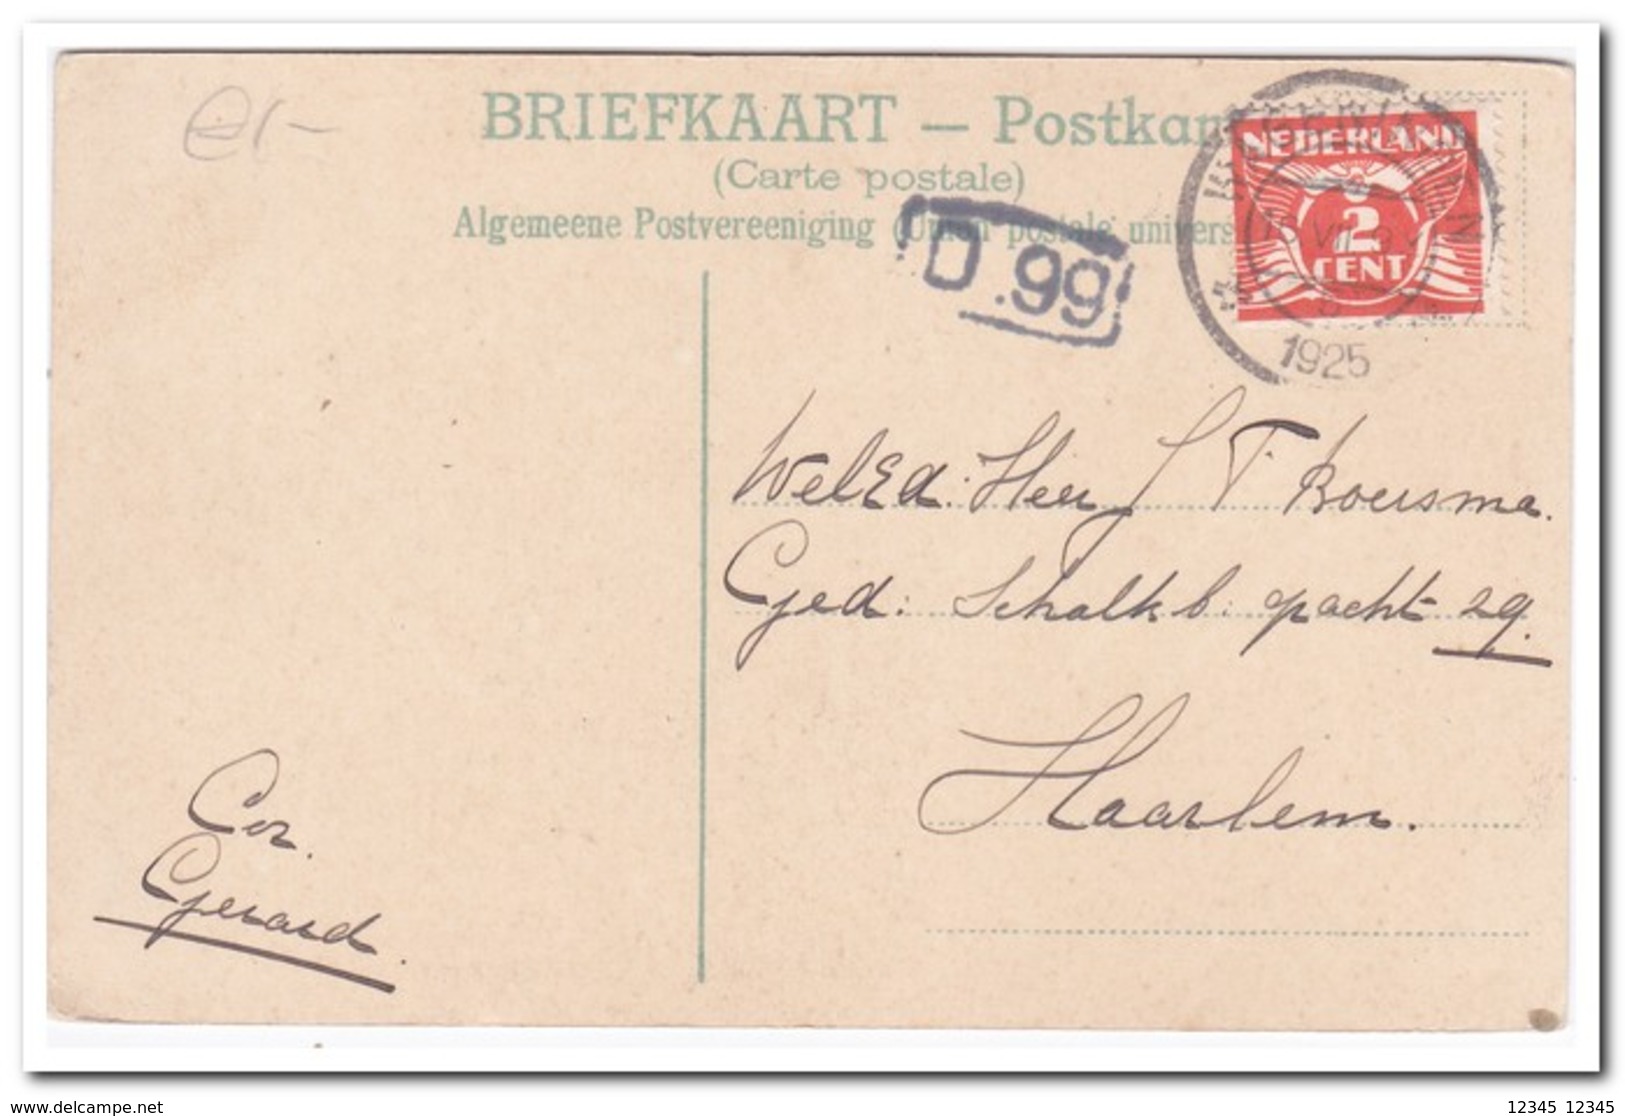 e1-
BRIEFKAART — Postkar
(Carte postale)
Algemeene Postvereeniging (Union postale univers
D.99
NEDERLAND
2
CENT
1925
WelEd: Heer J T. Boersma.
Ged: Schalk b: gracht 29.
Haarlem.
Cor.
Gerard.
www.delcampe.net
12345 12345